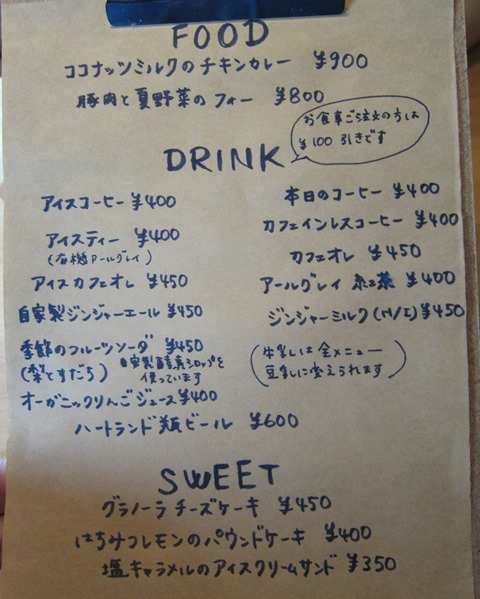 FOOD
ココナッツミルクのチキンカレー ¥900
豚肉と夏野菜のフォー ¥800
お食事ご注文の方は
¥100引きです
DRINK
アイスコーヒー ¥400
アイスティー ¥400
(有機アールグレイ)
アイスカフェオレ ¥450
自家製ジンジャーエール ¥450
季節のフルーツソーダ ¥450
(梨とすだち) 自家製酵素シロップを
使っています
オーガニックりんごジュース ¥400
ハートランド瓶ビール ¥600
本日のコーヒー ¥400
カフェインレスコーヒー ¥400
カフェオレ ¥450
アールグレイ 紅茶 ¥400
ジンジャーミルク (H/I) ¥450
(牛乳は全メニュー
豆乳に変えられます)
SWEET
グラノーラチーズケーキ ¥450
はちみつレモンのパウンドケーキ ¥400
塩キャラメルのアイスクリームサンド ¥350